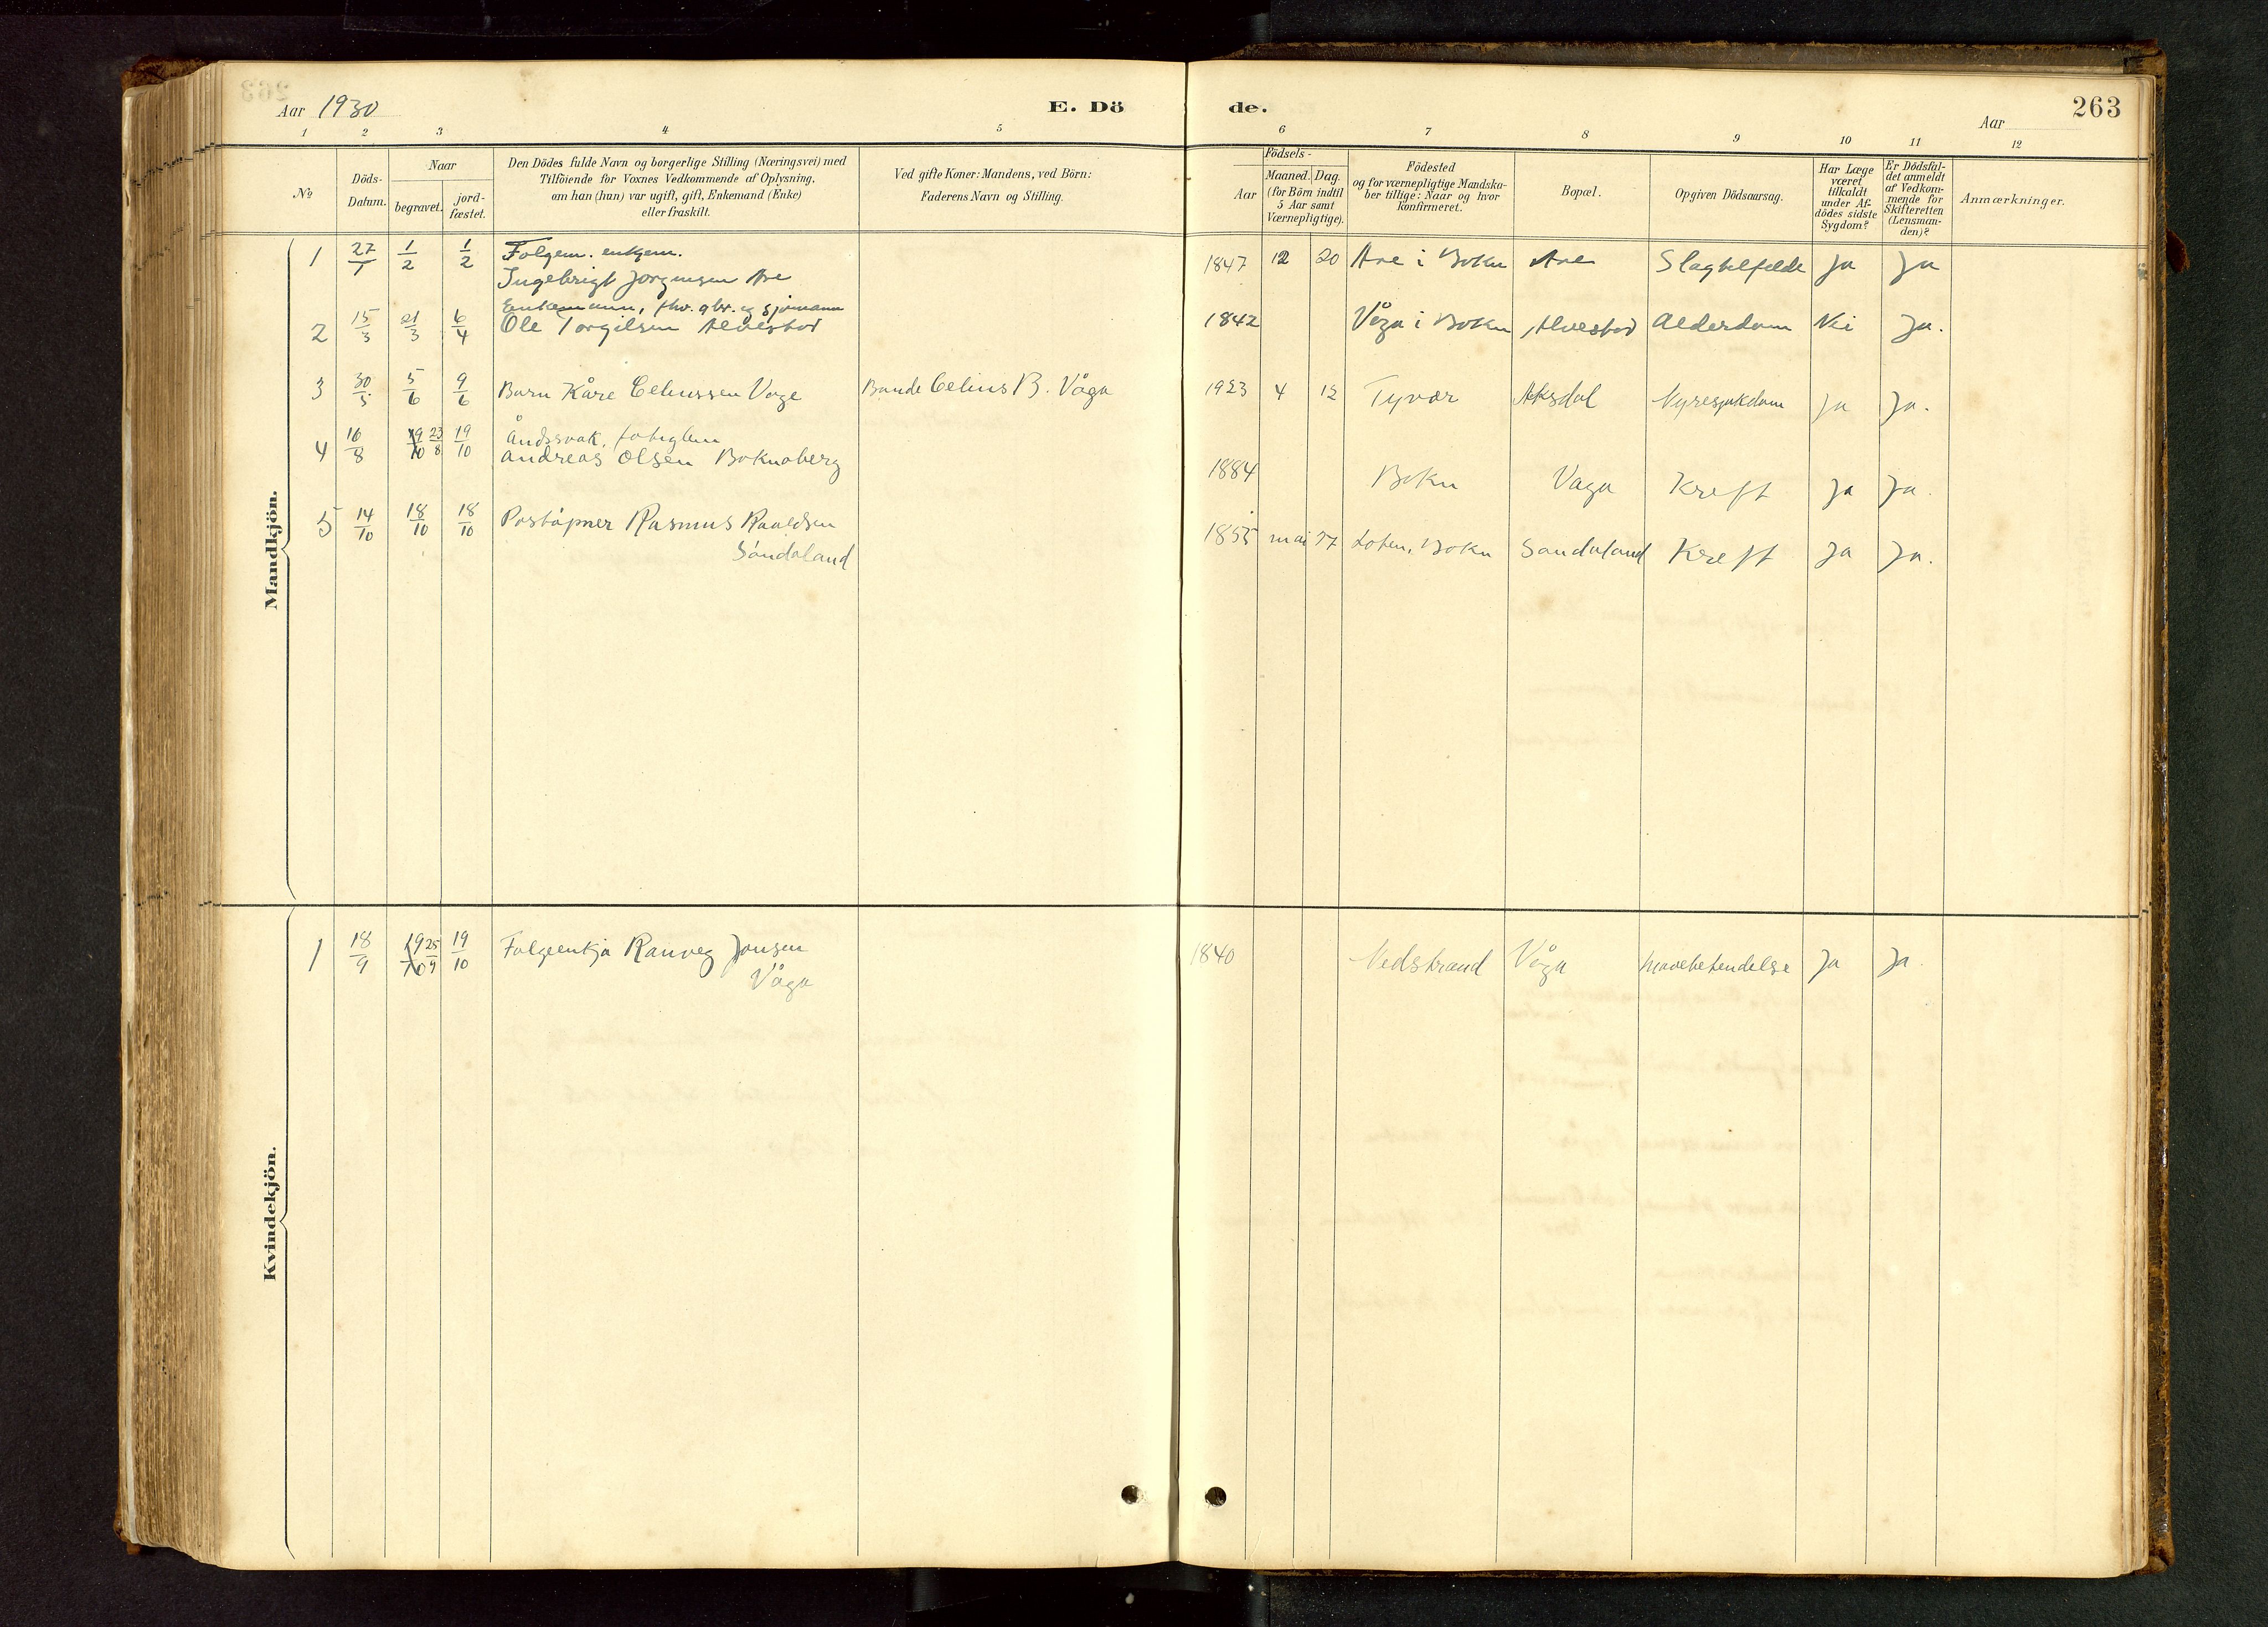 263
Aar 1930
E. Dö
de.
Aar
1 2 3 4 5 6 7 8 9 10 11 12
No
Döds-Datum.
Naar
begravet.
jord-fæstet.
Den Dödes fulde Navn og borgerlige Stilling (Næringsvei) med
Tilföiende for Voxnes Vedkommende af Oplysning,
om han (hun) var ugift, gift, Enkemand (Enke)
eller fraskilt.
Ved gifte Koner: Mandens, ved Börn:
Faderens Navn og Stilling.
Födsels-
Aar
Maaned. Dag.
(for Börn indtil
5 Aar samt
Værnepligtige).
Födested
og for værnepligtige Mandska-
ber tillige: Naar og hvor
konfirmeret.
Bopæl.
Opgiven Dödsaarsag.
Har Læge
været
tilkaldt
under Af-
dödes sidste
Sygdom?
Er Dödsfal-
det anmeldt
af Vedkom-
mende for
Skifteretten
(Lensman-
den)?
Anmærkninger.
Mandkjön.
1 27/1 1/2 1/2 Folgem. enkem.
Ingebrigt Jorgensen Are 1847 12 20 Are i Bokn Are Slagtilfelde Ja Ja
Enkemann, fhv. gbr. og sjømann
2 15/3 21/3 6/4 Ole Torgilsen Alvestad 1842 Våga i Bokn Alvestad Alderdom Nei Ja.
3 30/5 5/6 9/6 Barn Kåre Celiussen Vage Bonde Celius B. Våga 1923 4 12 Tyvær Aksdal Nyresykdom Ja Ja.
4 16/8 19/10 23/8 19/10 Åndssvak,
Andreas Olsen Boknaberg 1884 Bokn Vaga Kreft Ja Ja.
5 14/10 18/10 18/10 Poståpner Rasmus
Sandaland 1855 mai 17 Loten, Bokn Sandaland Kreft Ja Ja.
Kvindekjön.
1 18/9 19/10 25/9 19/10 Folgeenkja Ranveg Jonsen
Våga 1840 Nedstrand Våga Mavebetendelse Ja Ja.